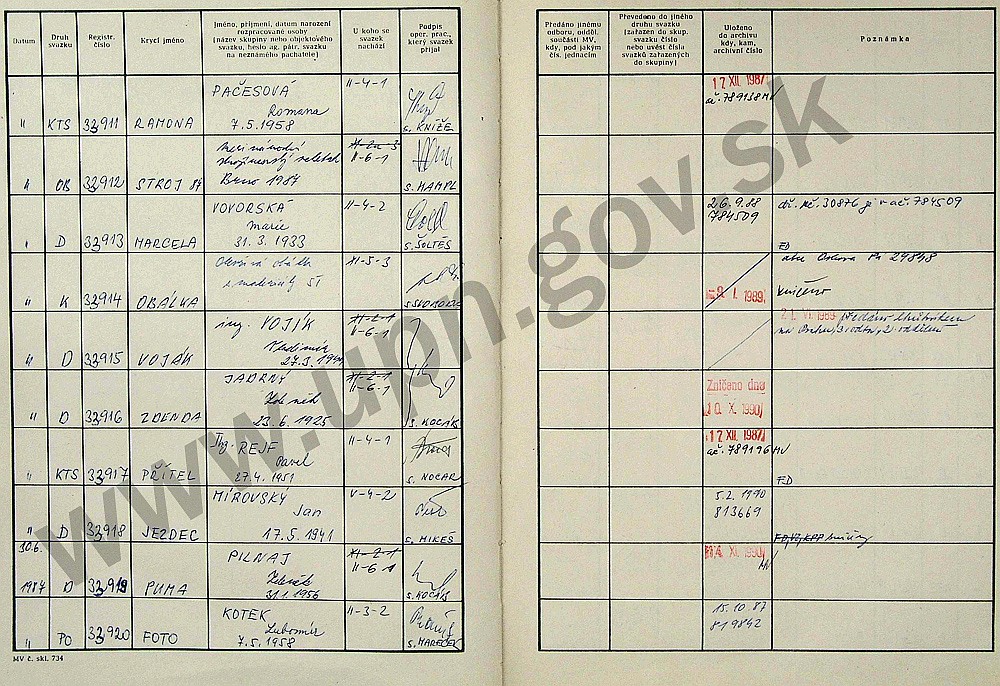 Datum
Druh
svazku
Registr.
číslo
Krycí jméno
Jméno, příjmení, datum narození
rozpracované osoby
(název skupiny nebo objektového
svazku, heslo ag. pátr. svazku
na neznámého pachatele)
U koho se
svazek
nachází
Podpis
oper. prac.,
který svazek
přijal
Předáno jinému
odboru, odděl.
součásti MV,
kdy, pod jakým
čís. jednacím
Převedeno do jiného
druhu svazku
(zařazen do skup.
svazku číslo
nebo uvést čísla
svazků zařazených
do skupiny)
Uloženo
do archivu
kdy, kam,
archivní číslo
Poznámka
" KTS 33911 RAMONA
PAČESOVÁ
Romana
7.5.1958
II-4-1
s. KNÍŽE
17. XII. 1987
ač. 789138 MV
" OB 33912 STROJ 87
Mezinárodní
strojírenský veletrh
Brno 1987
II-2a-3
II-6-1
s. HAMPL
" D 33913 MARCELA
VOVORSKÁ
Marie
31.3.1933
II-4-2
s. ŠOLTÉS
26.9.88
784509
ač. 784509
FD
" K 33914 OBÁLKA
s materiály ST
XI-5-3
s. SVOBODA
-9. I. 1989
zničeno
" D 33915 VOJÁK
ing. VOJÍK
Vladimír
II-2-1
II-6-1
2 1. VI. 1989
" D 33916 ZDENDA
JADRNÝ
Zdeněk
23.6.1925
II-2-1
II-6-1
s. KOCÁB
Zničeno dne
10. X. 1990
" KTS 33917 PŘÍTEL
Ing. REJF
Pavel
27.4.1951
II-4-1
s. NOCAR
17. XII. 1987
ač. 789196 MV
FD
" D 33918 JEZDEC
MÍROVSKÝ
Jan
17.5.1941
V-4-2
s. MIKEŠ
5.2.1990
813669
30.6.
1987 D 33919 PUMA
PILNAJ
Zdeněk
31.1.1956
II-2-1
II-6-1
s. KOCÁB
XI. 1990
MV
" PO 33920 FOTO
KOTEK
Lubomír
7.5.1958
II-3-2
s. MAREČEK
15.10.87
819842
MV č. skl. 734
www.upn.gov.sk